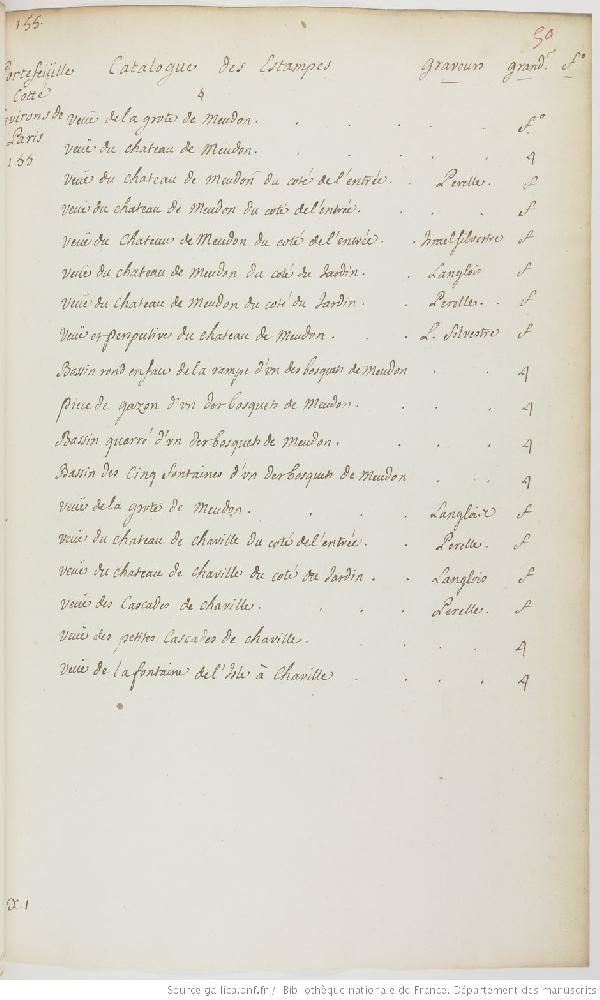 155.
50
Portefeüille Catalogue des Estampes Graveurs grand.r f.o
Cotté
4
Environs de
Paris
155
Veüe de la grote de Meudon. f.o
Veüe du chateau de Meudon. 4
Veüe du chateau de Meudon du coté de l'entrée. Perelle. f
Veüe du chateau de Meudon du coté de l'entrée. f
Veüe du Chateau de Meudon du coté de l'entrée. Israel silvestre f
Veüe du chateau de Meudon du coté du Jardin. Langlois f
Veüe du chateau de Meudon du coté du Jardin. Perelle. f
Veüe et perspective du chateau de Meudon. L. Silvestre f
Bassin rond en face de la rampe d'vn des bosquets de Meudon 4
piece de gazon d'vn des bosquets de Meudon. 4
Bassin quarré d'vn des bosquets de Meudon. 4
Bassin des Cinq fontaines d'vn des bosquets de Meudon 4
Veüe de la grote de Meudon. Langlois f
Veüe du chateau de chaville du coté de l'entrée. Perelle. f
Veüe du chateau de chaville du coté du Jardin. Langlois f
Veüe des Cascades de chaville. Perelle. f
Veüe des petites Cascades de chaville. 4
Veüe de la fontaine de l'Isle à Chaville 4
X.1
Source gallica.bnf.fr / Bibliothèque nationale de France. Département des manuscrits